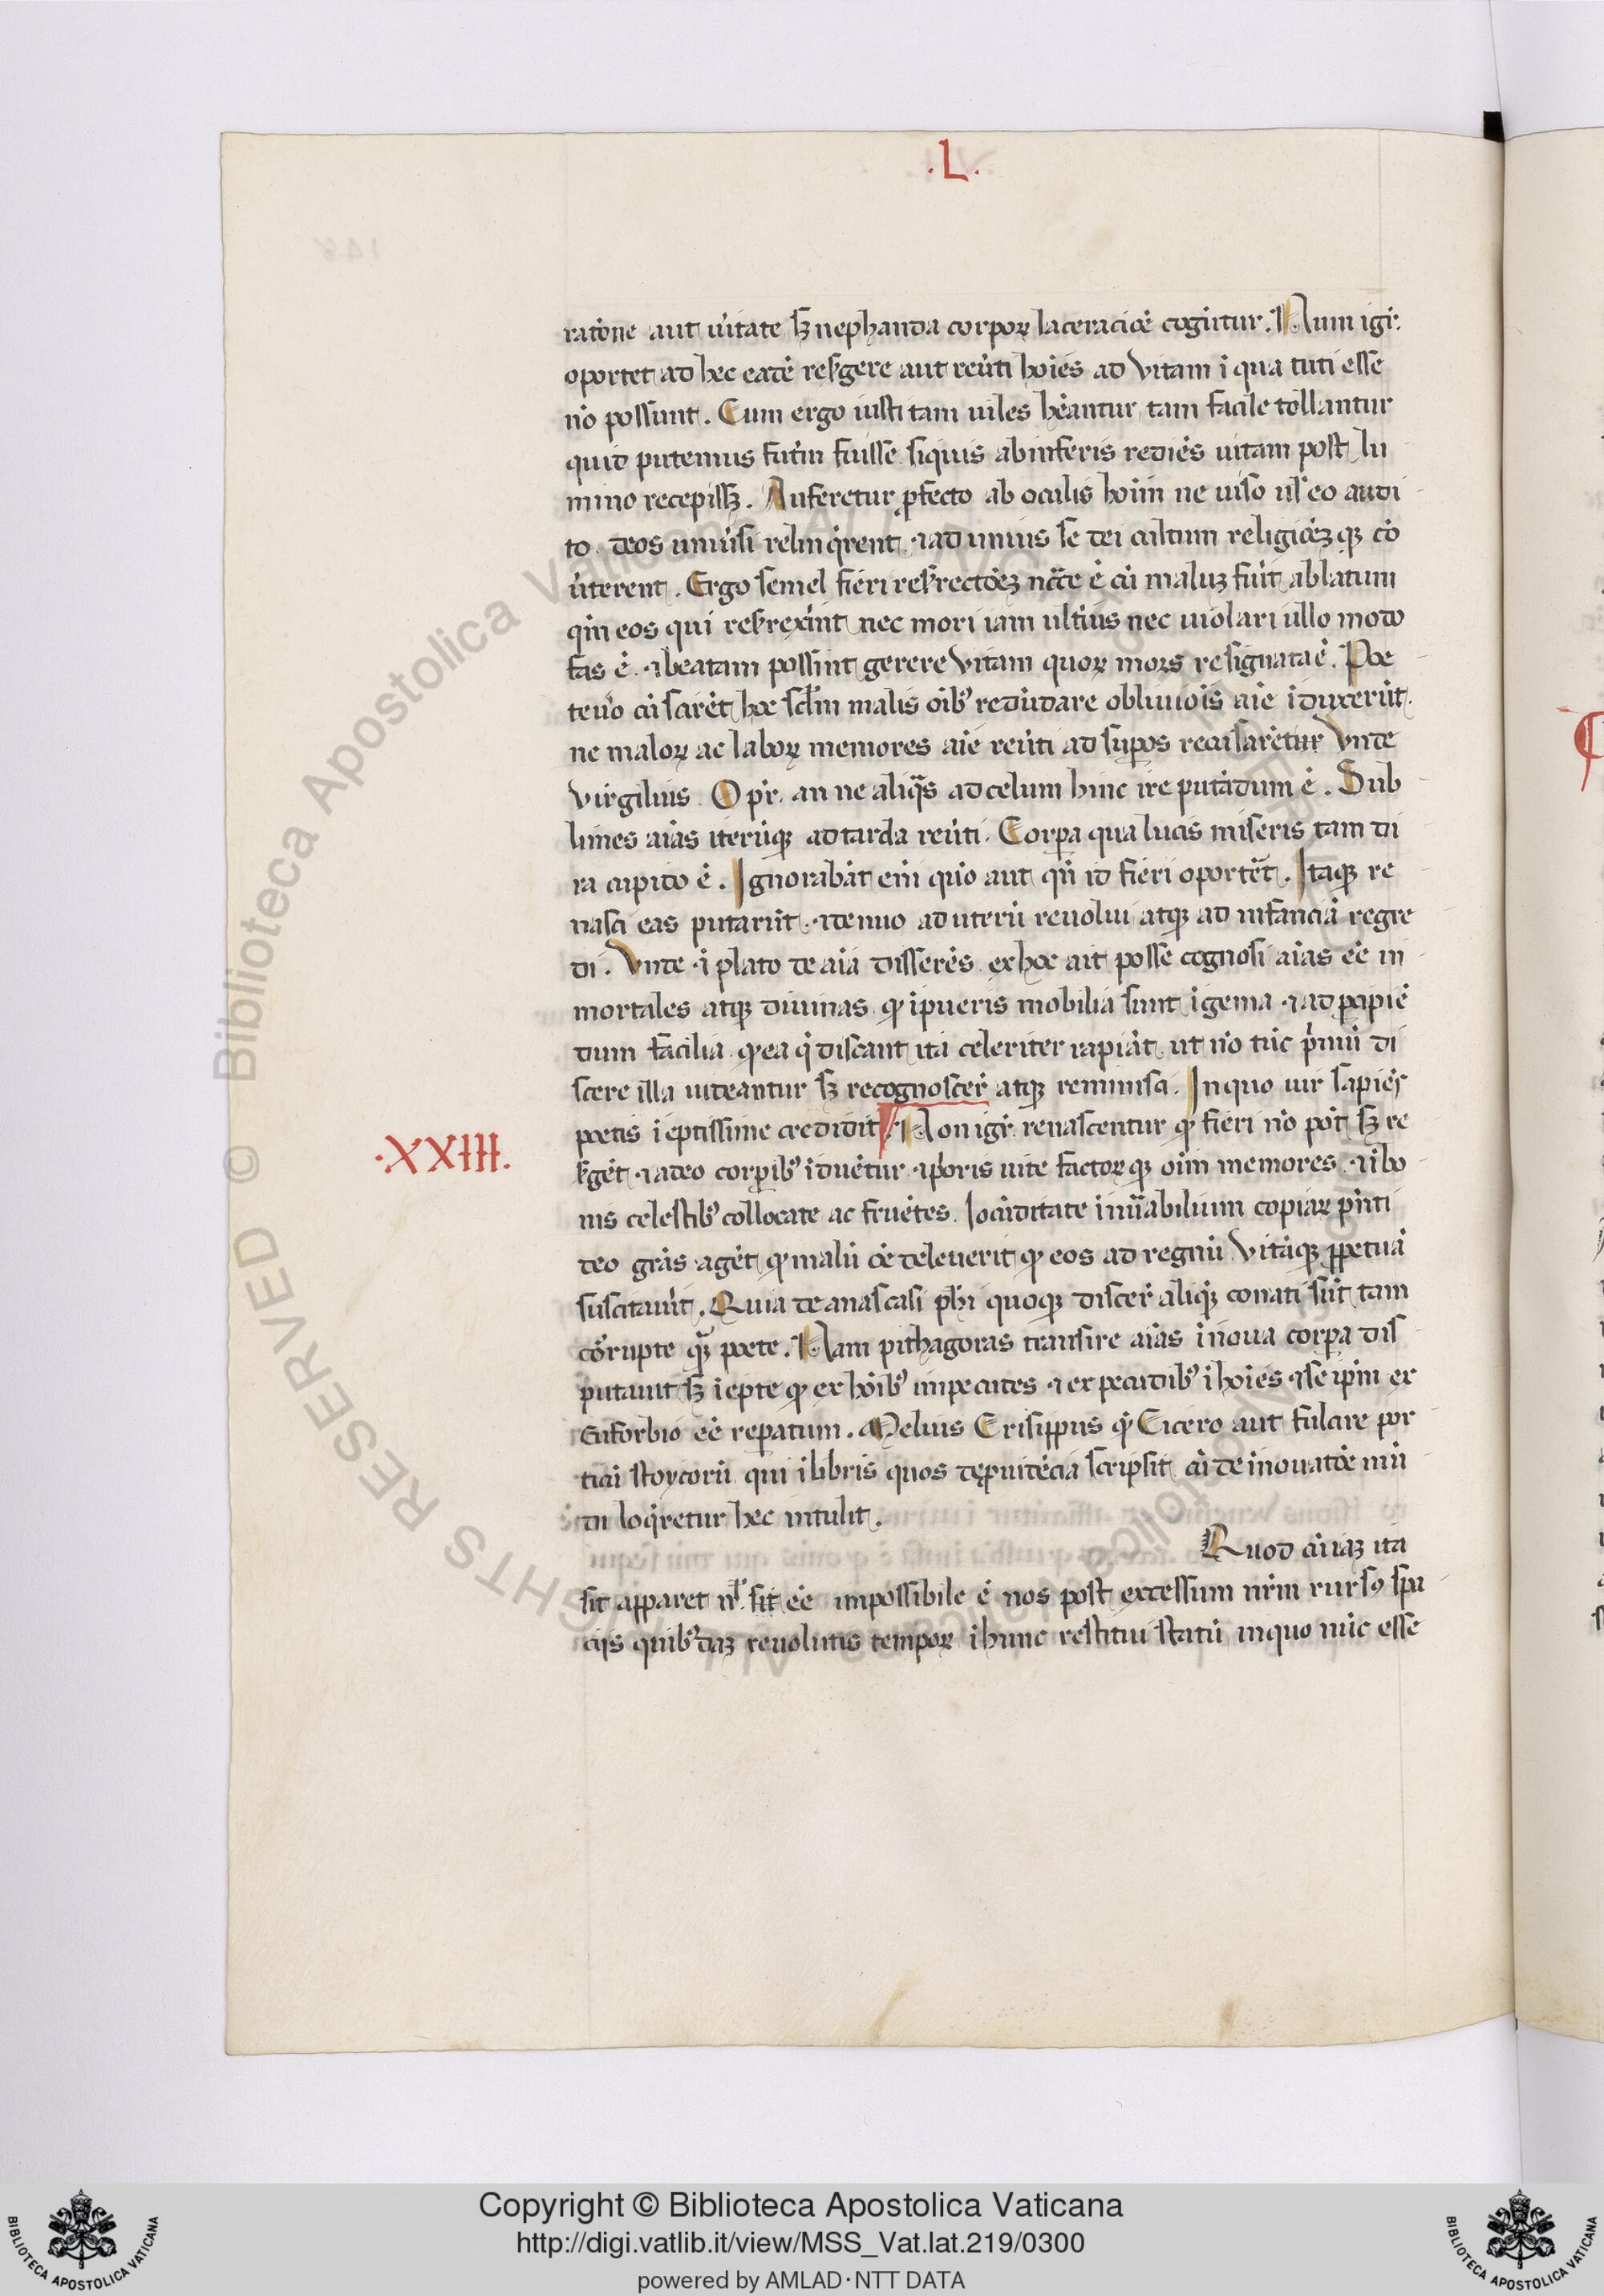 .L.
ratōne aut ūitate sꝫ nephanda corpoꝝ laceraciōē cogūtur. Num igiᷣ.
oportet ad hec eadē resᷣgere aut reūti hoīes ad vitam ī qua tuti esse
nō possunt. Cum ergo iusti tam uiles hēantur tam facile tollantur
quid putemus futm̄ fuisse siquis ab inferis rediēs uitam post li
minio recepissꝫ. Auferetur ꝓfecto ab oculis hoīm ne uiso ul̄ eo audi
to deos uniūsi relinq̄rent ⁊ ad unius se dei cultum religiōeꝫ qꝫ cō
ūterent. Ergo semel fieri resᷣrectōeꝫ nc̄ce ē cū maluꝫ fūit ablatum
qm̄ eos qui resᷣrexīnt nec mori iam ultīus nec uiolari ullo modo
fas ē. ⁊ beatam possint gerere vitam quoꝝ mors resignata ē. Poe
te ūo cū scirēt hoc scl̄m malis oībꝰ redūdare obliuiōis aīe īduxerūt.
ne maloꝝ ac laboꝝ memores aīe reūti ad suꝑos recusarētur vnde
virgilius. O pr̄. an ne aliq̄s ad celum hinc ire putādum ē. Sub
limes aīas iterūqꝫ ad tarda reūti. Corꝑa qua lucis miseris tam di
ra cupido ē. Ignorabāt eīn quō aut qn̄ id fieri oportēt. Itaqꝫ re
nasci eas putarūt. ⁊ denuo ad uterū reuolui atqꝫ ad infanciā regre
di. Vnde ⁊ ī plato de aīa disserēs ex hoc ait posse cognosi aīas eē in
mortales atqꝫ diuinas ꝙ ī pueris mobilia sunt īgenia ⁊ ad ꝑcipiē
dum facilia ꝙ ea q̄ discant ita celeriter rapiāt ut nō tūc p̄mū di
scere illa uideantur sꝫ recognoscer̄ atqꝫ reminisci. In quo uir sapiēs
poetis īeptissime credidit. Non igiᷣ. renascentur ꝙ fieri nō pōt sꝫ re
.XXIII.
sᷣgēt ⁊ a deo corꝑibꝰ īduētur ⁊ p̄oris uite factoꝝqꝫ oīm memores ⁊ ī bo
nis celestibꝰ collocate ac fruētes. Iocūditate īnūabilium copiaꝝ p̄nti
deo grās agēt ꝙ malū oē deleuerit ꝙ eos ad regnū vitāqꝫ ꝑpetuā
suscitaūit. Quia de anascasi ph̄i quoqꝫ discer̄ aliq̄ꝫ conati sūt tam
cōrupte q̄ꝫ poete. Nam pithagoras transire aīas ī noua corꝑa dis
putauit sꝫ īepte ꝙ ex hoībꝰ in pecudes ⁊ ex pecudibꝰ ī hoīes ⁊ se ip̄m ex
Euforbio eē reꝑatum. Melius Crisippus q̄ꝫ Cicero aut fulcire por
ticū stoycorū qui ī libris quos de ꝓuidēcia scripsit cū de īnouatōe mū
di loq̄retur hec intulit.
Quod cū iaꝫ ita
sit apparet nl̄. sit eē impossibile ē nos post excessum nr̄m rursꝰ spa
cijs quibꝰdaꝫ reuolutis tempoꝝ ī hunc restitui statū in quo nūc esse
Copyright © Biblioteca Apostolica Vaticana
http://digi.vatlib.it/view/MSS_Vat.lat.219/0300
powered by AMLAD·NTT DATA
BIBLIOTECA APOSTOLICA VATICANA
BIBLIOTECA APOSTOLICA VATICANA